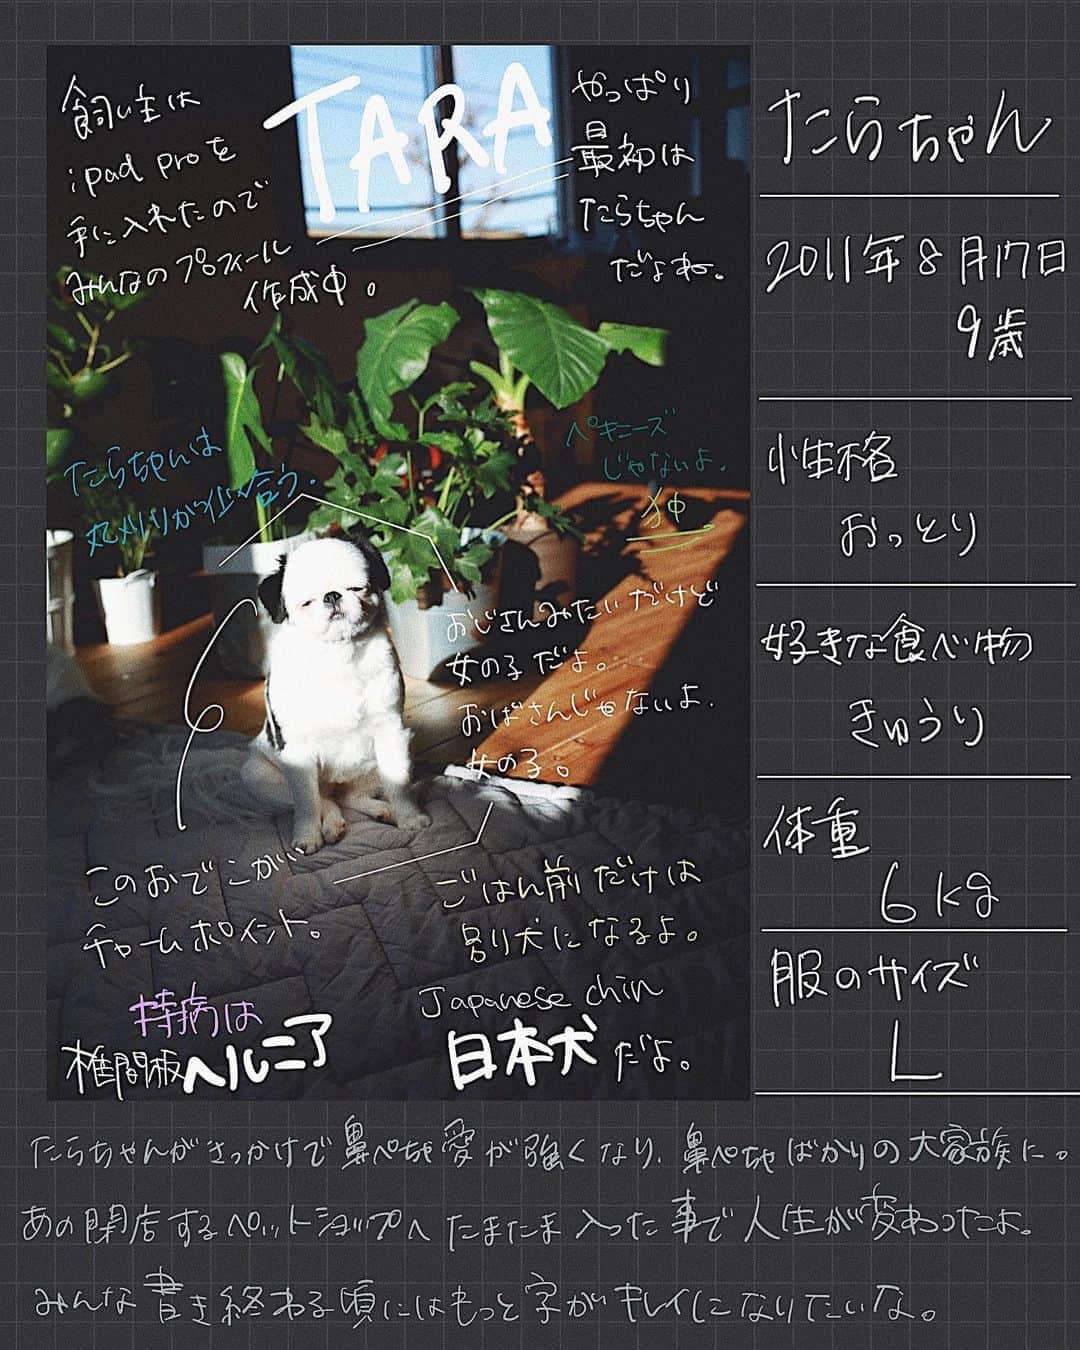 飼い主は
ipad proを
手に入れたので
みんなのプロフィール
作成中。
TARA
やっぱり
最初は
たらちゃん
だよね。
たらちゃんは
丸メガネが似合う.
ペキニーズ
じゃないよ.
狆
おじさんみたいだけど
女の子だよ。
おばさんじゃないよ.
女の子。
このおでこが
チャームポイント。
ごはん前だけは
別り犬になるよ。
持病は
椎間板ヘルニア
Japanese chin
日本犬だよ。
たらちゃん
2011年8月17日
9歳
性格
おっとり
好きな食べ物
きゅうり
体重
6kg
服のサイズ
L
たらちゃんがきっかけで鼻ぺちゃ愛が強くなり.鼻ぺちゃばかりの大家族に。
あの閉店するペットショップへたまたま入った事で人生が変わったよ。
みんな書き終わる頃にはもっと字がキレイになりたいな。